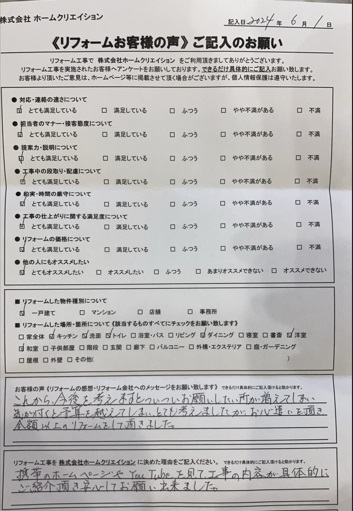 株式会社 ホームクリエイション
記入日 2024 年 6 月 1 日
《リフォームお客様の声》ご記入のお願い
リフォーム工事で 株式会社ホームクリエイション をご利用頂きましてありがとうございます。
リフォーム工事を実施されたお客様へアンケートをお願いしております。できるだけ具体的にご記入お願い致します。
お客様より頂いたご意見は、ホームページ等に掲載させて頂く場合がございますが、個人情報保護は遵守いたします。
● 対応・連絡の速さについて
☑ とても満足している □ 満足している □ ふつう □ やや不満がある □ 不満
● 担当者のマナー・接客態度について
☑ とても満足している □ 満足している □ ふつう □ やや不満がある □ 不満
● 提案力・説明について
☑ とても満足している □ 満足している □ ふつう □ やや不満がある □ 不満
● 工事中の段取り・配慮について
☑ とても満足している □ 満足している □ ふつう □ やや不満がある □ 不満
● 約束・時間の厳守について
☑ とても満足している □ 満足している □ ふつう □ やや不満がある □ 不満
● 工事の仕上がりに関する満足度について
☑ とても満足している □ 満足している □ ふつう □ やや不満がある □ 不満
● リフォームの価格について
☑ とても満足している □ 満足している □ ふつう □ やや不満がある □ 不満
● 他の人にもオススメしたい
☑ とてもオススメしたい □ オススメしたい □ ふつう □ あまりオススメできない □ オススメできない
■ リフォームした物件種別について
☑ 一戸建て □ マンション □ 店舗 □ 事務所
■ リフォームした場所・箇所について《該当するものすべてにチェックをお願い致します》
□ 家全体 ☑ キッチン ☑ 洗面 ☑ トイレ □ 浴室・バス □ リビング ☑ ダイニング □ 寝室 □ 書斎 ☑ 洋室
□ 和室 □ 子供部屋 □ 階段 □ 玄関 □ 廊下 □ バルコニー □ 外構・エクステリア □ 庭・ガーデニング
□ 屋根 □ 外壁 □ その他( )
お客様の声《リフォームの感想・リフォーム会社へのメッセージをお願い致します》できるだけ具体的にご記入頂けると助かります。
これから、今後を考えますとついついお願いしたい所が増えてしまい
気が付くと予算を越えてしまい、とても考えましたが、お心遣いを頂き
金額以上のリフォームをして頂きました。
リフォーム工事を 株式会社ホームクリエイション に決めた理由をご記入ください。できるだけ具体的にご記入頂けると助かります。
携帯のホームページや You Tube を見て工事の内容が具体的に
ご紹介頂き安心してお願い出来ました。